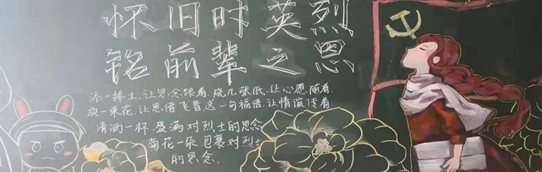 怀旧时英烈
铭前辈之恩
添一捧土,让思念跟着,烧几张纸,让心愿随着,
放一束花,让思情飞着,送一句福语,让情谊浮着
清酒一杯,盛满对烈士的思念
菊花一朵,包裹对烈士
的思念。